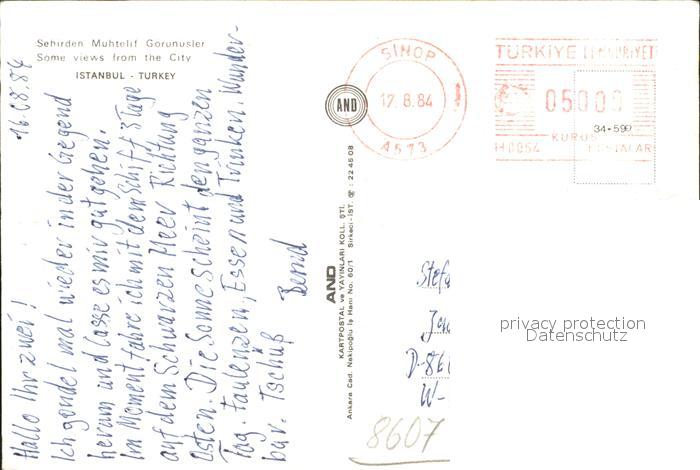 Sehirden Muhtelif Gorunusler
Some views from the City
ISTANBUL - TURKEY
16.08.84
Hallo Ihr zwei!
Ich gondel mal wieder in der Gegend
herum und lasse es mir gut gehen.
Im Moment fahre ich mit dem Schiff 3 Tage
auf dem Schwarzen Meer Richtung
Osten. Die Sonne scheint den ganzen
Tag. Faulenzen, Essen und Trinken. Wunder-
bar. Tschüß Bernd
AND
AND
KARTPOSTAL ve YAYINLARI KOLL. ŞTİ.
Ankara Cad. Nakipoğlu İş Hanı No. 60/1 Sirkeci-İST. ☎: 22 45 08
SINOP
17.8.84
A573
TÜRKİYE CUMHURİYETİ
05000
34-599
KURUŞ
H0054 POSTALAR
Stefa
D-861
W-
privacy protection
Datenschutz
8607